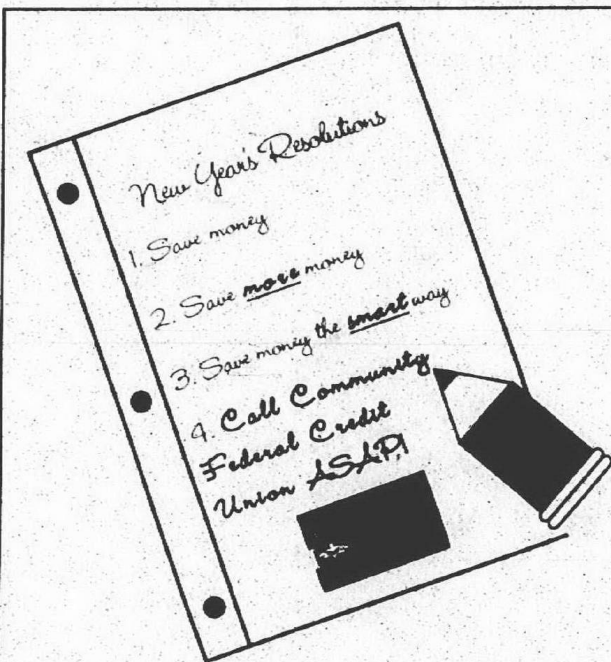 New Year's Resolutions
1. Save money
2. Save more money
3. Save money the smart way
4. Call Community
Federal Credit
Union A.S.A.P.!